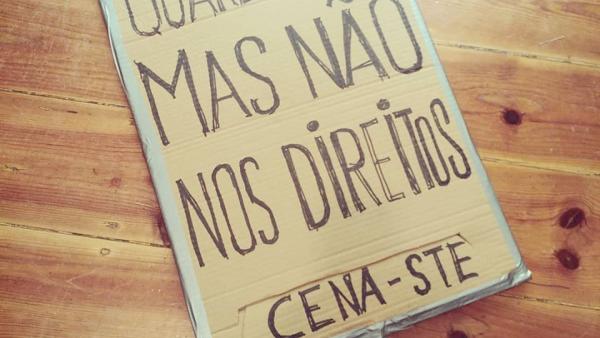 MAS NÃO
NOS DIREITOS
CENA-STE